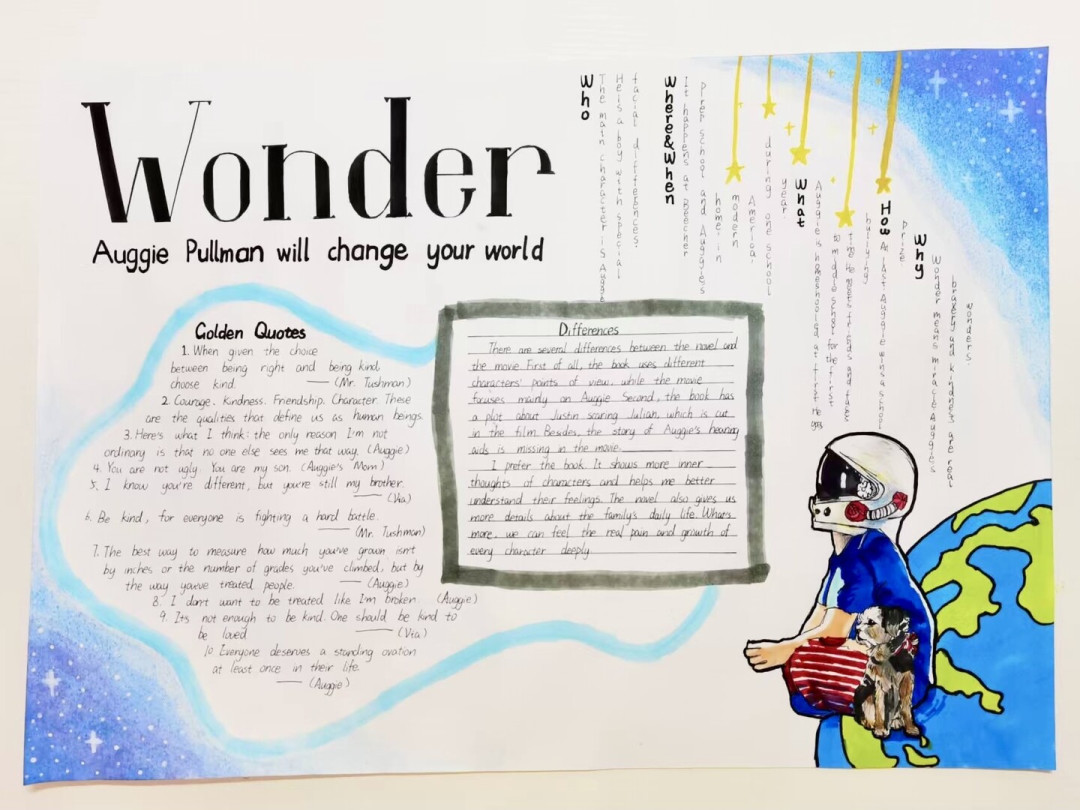 Wonder
Auggie Pullman will change your world
Who
The main character is Auggie
He is a boy with special
facial differences.
Where&When
It happens at Beecher
Prep School and Auggie's
home in
modern
America,
during one school
year.
What
Auggie is homeschooled at first. He goes
to middle school for the first
time. He meets friends and faces
bullying.
How
At last Auggie wins a school
prize.
Why
Wonder means miracle. Auggie's
bravery and kindness are real
wonders.
Golden Quotes
1. When given the choice
between being right and being kind,
choose kind. —— (Mr. Tushman)
2. Courage. Kindness. Friendship. Character. These
are the qualities that define us as human beings.
3. Here's what I think: the only reason I'm not
ordinary is that no one else sees me that way. (Auggie)
4. You are not ugly. You are my son. (Auggie's Mom)
5. I know you're different, but you're still my brother.
—— (Via)
6. Be kind, for everyone is fighting a hard battle.
—— (Mr. Tushman)
7. The best way to measure how much you've grown isn't
by inches or the number of grades you've climbed, but by
the way you've treated people. —— (Auggie)
8. I don't want to be treated like I'm broken. (Auggie)
9. It's not enough to be kind. One should be kind to
be loved —— (Via)
10. Everyone deserves a standing ovation
at least once in their life.
—— (Auggie)
Differences
There are several differences between the novel and
the movie. First of all, the book uses different
characters' points of view, while the movie
focuses mainly on Auggie. Second, the book has
a plot about Justin scaring Julian, which is cut
in the film. Besides, the story of Auggie's hearing
aids is missing in the movie.
I prefer the book. It shows more inner
thoughts of characters and helps me better
understand their feelings. The novel also gives us
more details about the family's daily life. What's
more, we can feel the real pain and growth of
every character deeply